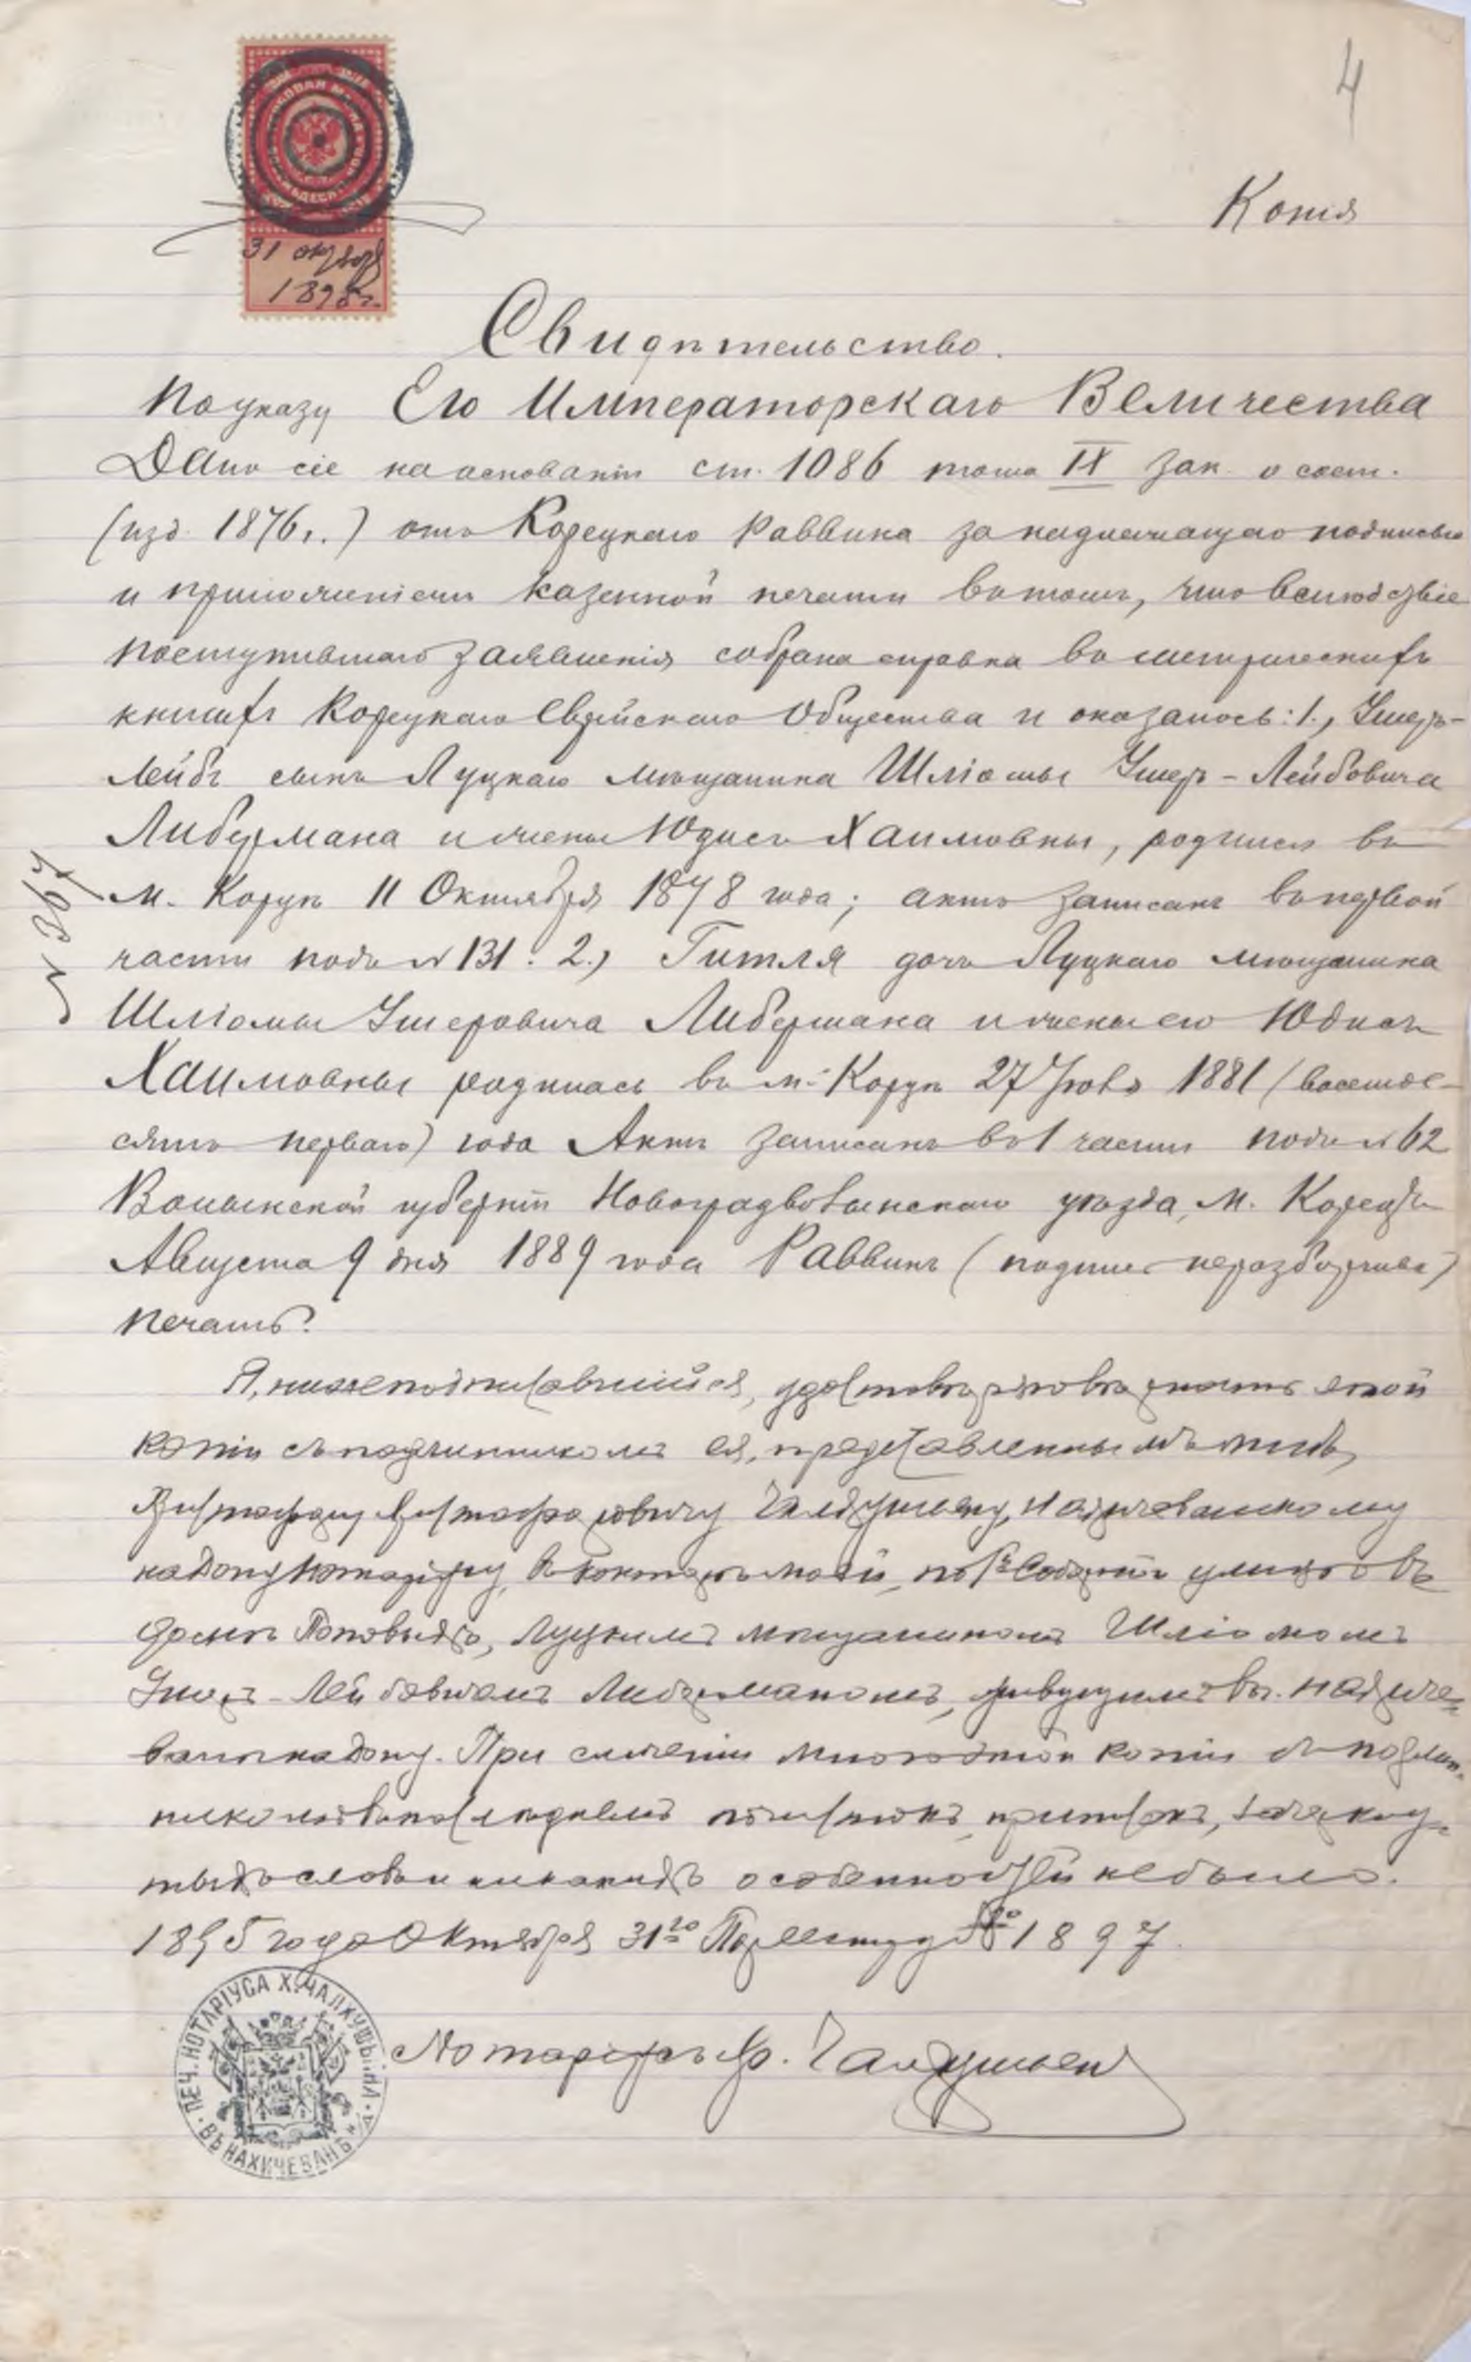 4
Копія
31 октября
1895 г.
Свидѣтельство.
По указу Его Императорскаго Величества
Дано сіе на основаніи ст. 1086 тома IX зак. о сост.
(изд. 1876 г.) отъ Корецкаго Раввина за надлежащею подписью
и приложеніемъ казенной печати въ томъ, что вслѣдствіе
поступившаго заявленія собрана справка въ метрическихъ
книгахъ Корецкаго Еврейскаго Общества и оказалось: 1., Ушеръ-
Лейбъ сынъ Луцкаго мѣщанина Шліомы Ушеръ-Лейбовича
Либермана и жены Юдись Хаимовны, родился въ
м. Корцѣ 11 Октября 1878 года; актъ записанъ въ первой
части подъ № 131. 2., Гитля дочь Луцкаго мѣщанина
Шліомы Ушеровича Либермана и жены его Юдись
Хаимовны родилась въ м. Корцѣ 27 1881 (восемьде-
сятъ перваго) года Актъ записанъ въ 1 части подъ № 62
Волынской губерніи Новоградволынскаго уѣзда, м. Корецъ
Августа 9 дня 1889 года Раввинъ (подпись неразборчива)
печать.
№ 367
Я, нижеподписавшійся, удостовѣряю вѣрность этой
копіи съ подлинникомъ ея, представленнымъ мнѣ,
Христофору Христофоровичу Чалхушьяну, Нахичеванскому
на Дону Нотаріусу, въ конторѣ моей, по 1й Соборной улицѣ въ
домѣ Поповыхъ, Луцкимъ мѣщаниномъ Шліомомъ
Ушеръ-Лейбовичемъ Либерманомъ, живущимъ въ г. Нахиче-
вани на Дону. При сличеніи мною этой копіи съ подлин-
никомъ въ послѣднемъ почистокъ, приписокъ, зачеркну-
тыхъ словъ и никакихъ особенностей не было.
1895 года Октября 31го По реестру № 1897.
Нотаріусъ Хр. Чалхушьянъ
ПЕЧ. НОТАРІУСА Х. ЧАЛХУШЬЯНА ВЪ НАХИЧЕВАНѢ н/Д.